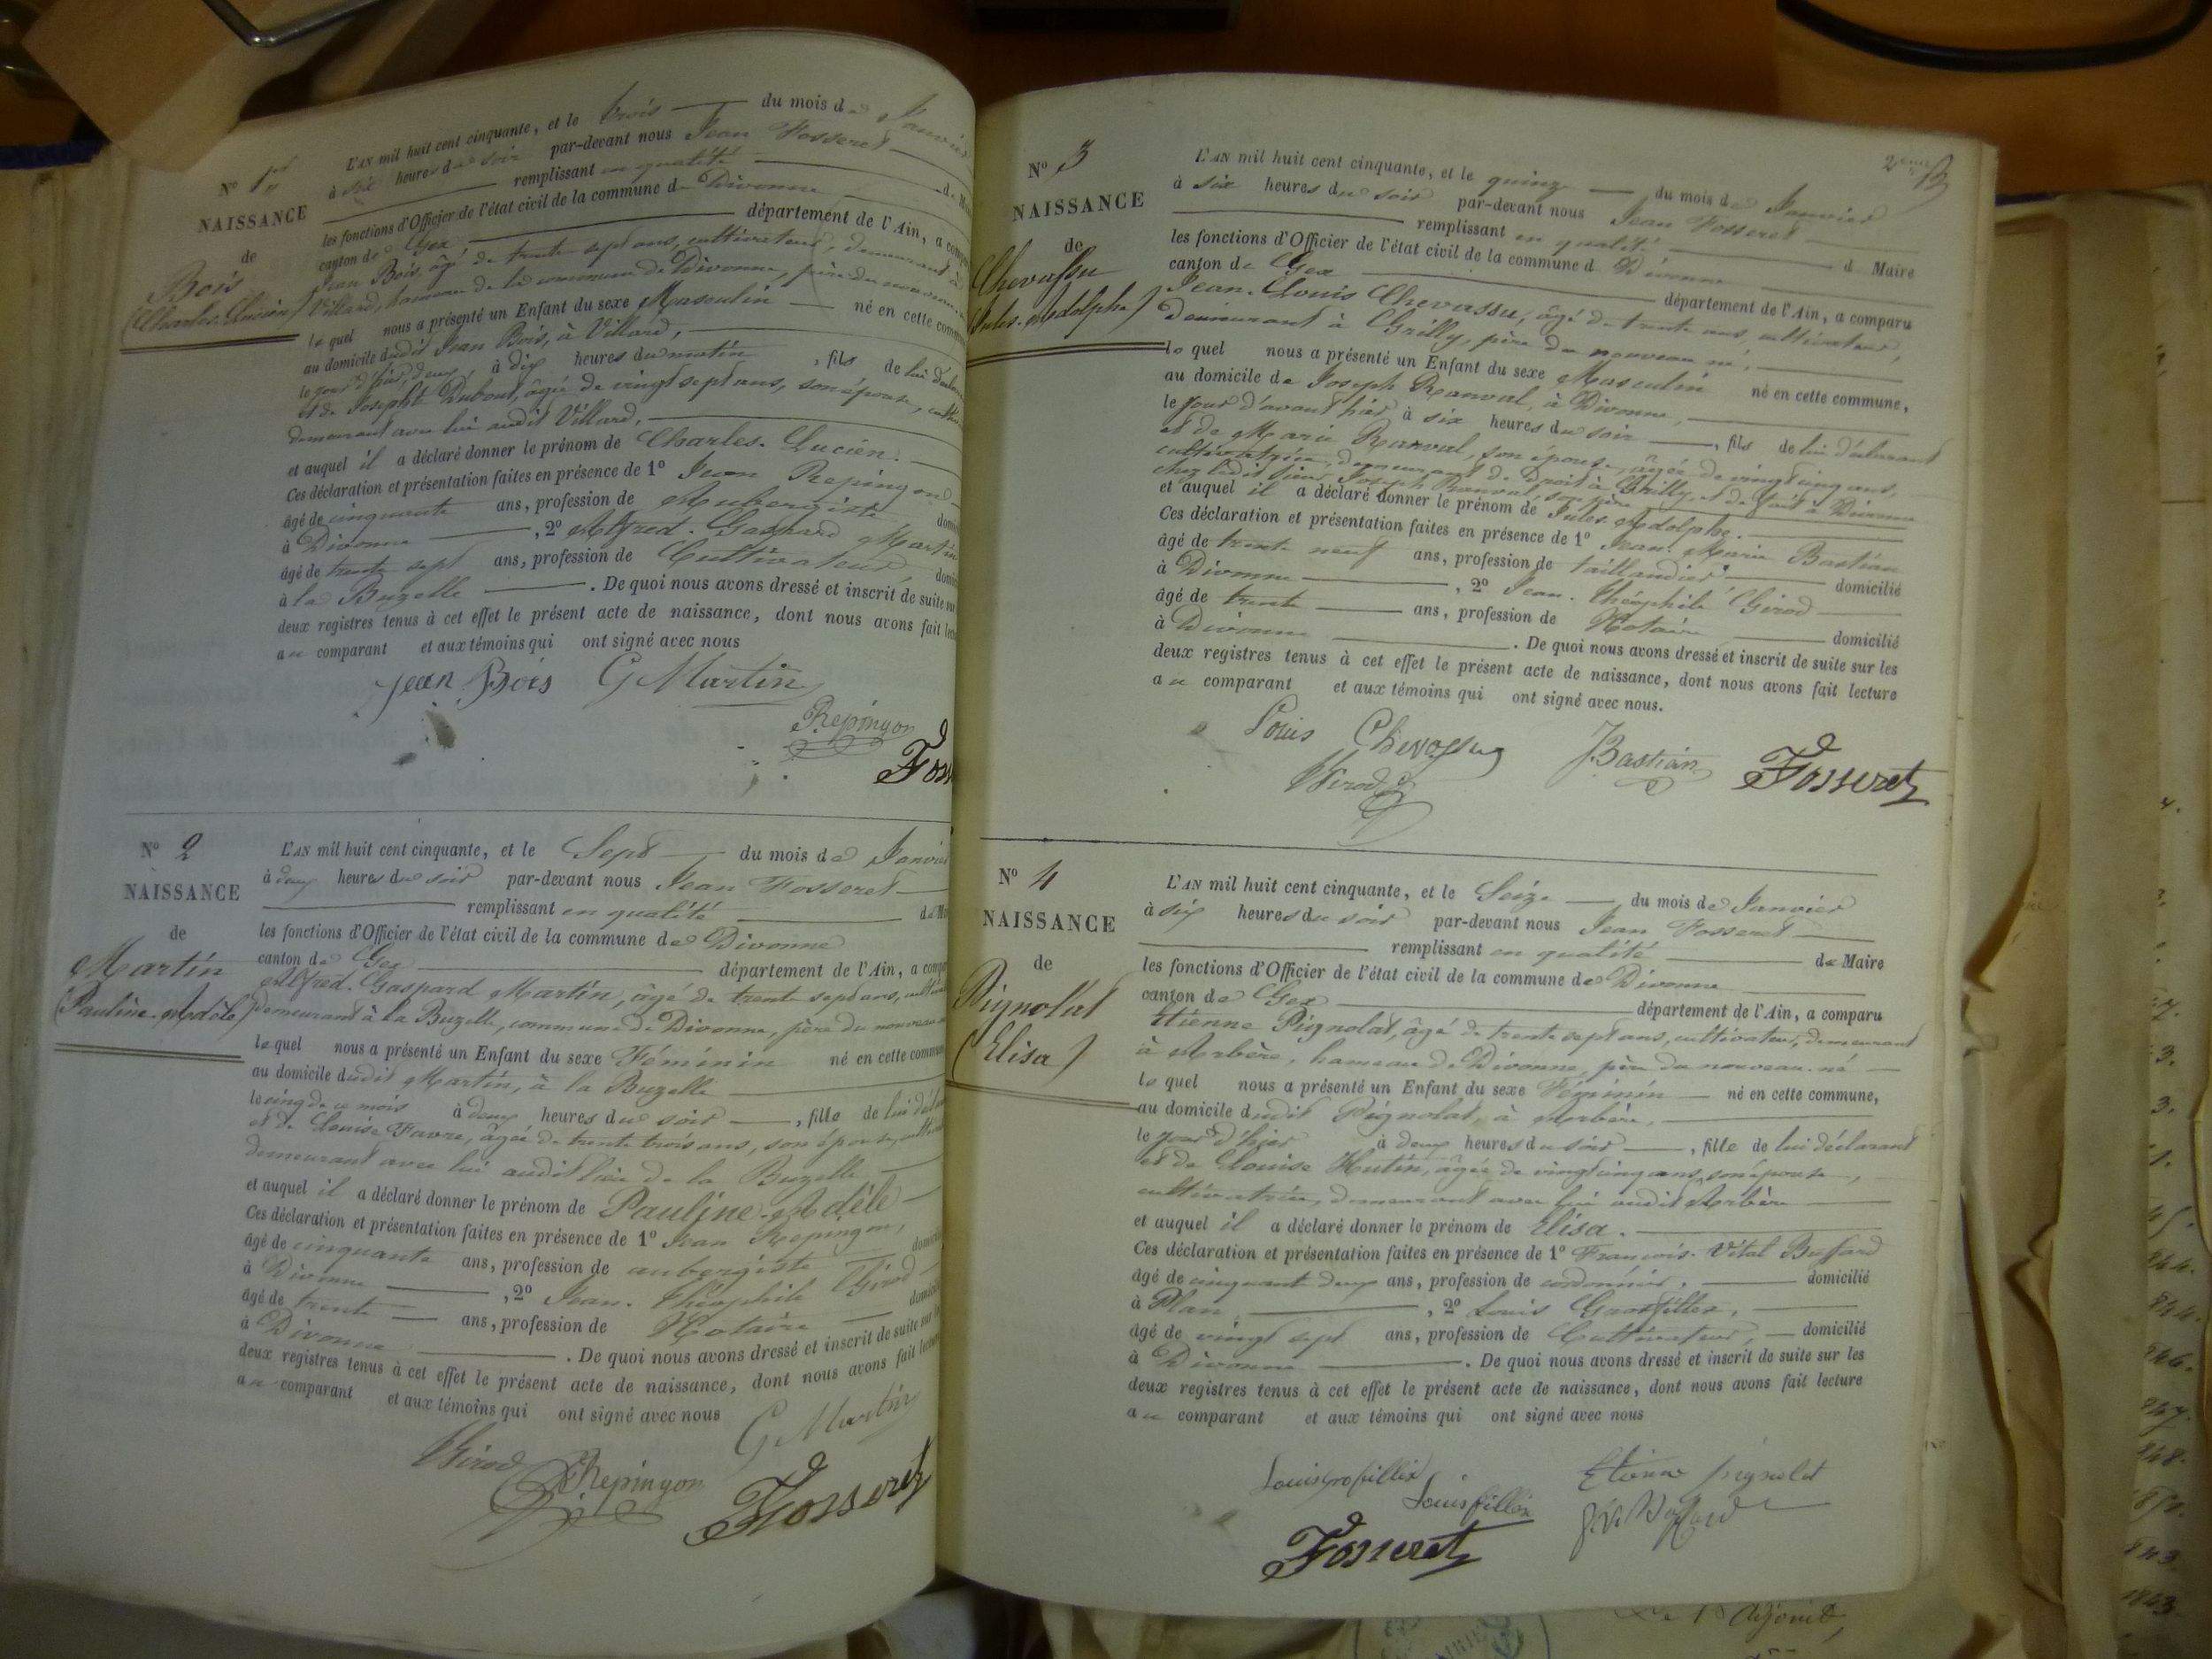 N° 1er
NAISSANCE
de
Bois
(Charles-Lucien)
L'AN mil huit cent cinquante, et le trois du mois de Janvier
à six heures du soir par-devant nous Jean Fosseret
remplissant en qualité de
les fonctions d'Officier de l'état civil de la commune de Divonne
canton de Gex département de l'Ain, a
Jean Bois, âgé de trente sept ans, cultivateur, demeurant à
Villard, hameau de la commune de Divonne, père du
le quel nous a présenté un Enfant du sexe Masculin né en cette
au domicile dudit Jean Bois, à Villard,
le jour d'hier, deux, à dix heures du matin, fils de lui
et de Josephte Dubout, âgée de vingt sept ans, son épouse,
demeurant avec lui audit Villard,
et auquel il a déclaré donner le prénom de Charles-Lucien.
Ces déclaration et présentation faites en présence de 1° Jean Repingon
âgé de cinquante ans, profession de Aubergiste
à Divonne, 2° Alfred-Gaspard Martin
âgé de trente sept ans, profession de Cultivateur,
à la Buzelle. De quoi nous avons dressé et inscrit de suite
deux registres tenus à cet effet le présent acte de naissance, dont nous avons fait
au comparant et aux témoins qui ont signé avec nous
Jean Bois G Martin
Repingon
N° 2
NAISSANCE
de
Martin
(Pauline-Adèle)
L'AN mil huit cent cinquante, et le Sept du mois de Janvier
à deux heures du soir par-devant nous Jean Fosseret
remplissant en qualité de
les fonctions d'Officier de l'état civil de la commune de Divonne
canton de Gex département de l'Ain, a
Alfred-Gaspard Martin, âgé de trente sept ans,
demeurant à la Buzelle, commune de Divonne, père du nouveau
le quel nous a présenté un Enfant du sexe Féminin né en cette
au domicile dudit Martin, à la Buzelle
le cinq de ce mois à deux heures du soir, fille de lui
et de Louise Favre, âgée de trente trois ans, son épouse,
demeurant avec lui audit lieu de la Buzelle
et auquel il a déclaré donner le prénom de Pauline-Adèle
Ces déclaration et présentation faites en présence de 1° Jean Repingon,
âgé de cinquante ans, profession de aubergiste
à Divonne, 2° Jean-Théophile Girod
âgé de trente ans, profession de Notaire
à Divonne. De quoi nous avons dressé et inscrit de suite sur
deux registres tenus à cet effet le présent acte de naissance, dont nous avons fait
au comparant et aux témoins qui ont signé avec nous
G Martin
Girod Repingon
Fosseret
2eme
N° 3
NAISSANCE
de
Chevassu
(Jules-Adolphe)
L'AN mil huit cent cinquante, et le quinze du mois de Janvier
à six heures du soir par-devant nous Jean Fosseret
remplissant en qualité d Maire
les fonctions d'Officier de l'état civil de la commune d Divonne
canton de Gex département de l'Ain, a comparu
Jean-Louis Chevassu, âgé de trente ans, cultivateur,
demeurant à Grilly, père du nouveau né,
le quel nous a présenté un Enfant du sexe Masculin né en cette commune,
au domicile de Joseph Ranval, à Divonne,
le jour d'avant hier, à six heures du soir, fils de lui déclarant
et de Marie Ranval, son épouse, âgée de vingt cinq ans,
cultivatrice, demeurant de droit à Grilly, et de fait à Divonne
chez ledit sieur Joseph Ranval, son père
et auquel il a déclaré donner le prénom de Jules-Adolphe.
Ces déclaration et présentation faites en présence de 1° Jean-Marie Bastian
âgé de trente neuf ans, profession de taillandier domicilié
à Divonne, 2° Jean-Théophile Girod
âgé de trente ans, profession de Notaire domicilié
à Divonne. De quoi nous avons dressé et inscrit de suite sur les
deux registres tenus à cet effet le présent acte de naissance, dont nous avons fait lecture
au comparant et aux témoins qui ont signé avec nous.
Louis Chevassu J. Bastian Fosseret
Girod
N° 4
NAISSANCE
de
Pignolat
(Elisa)
L'AN mil huit cent cinquante, et le Seize du mois de Janvier
à six heures du soir par-devant nous Jean Fosseret
remplissant en qualité de Maire
les fonctions d'Officier de l'état civil de la commune de Divonne
canton de Gex département de l'Ain, a comparu
Etienne Pignolat, âgé de trente sept ans, cultivateur, demeurant
à Arbère, hameau de Divonne, père du nouveau-né
le quel nous a présenté un Enfant du sexe Féminin né en cette commune,
au domicile dudit Pignolat, à Arbère,
le jour d'hier à deux heures du soir, fille de lui déclarant
et de Louise Hutin, âgée de vingt cinq ans, son épouse,
cultivatrice, demeurant avec lui audit Arbère
et auquel il a déclaré donner le prénom de Elisa.
Ces déclaration et présentation faites en présence de 1° François-Vital Bussard
âgé de cinquante deux ans, profession de cordonnier, domicilié
à Plan, 2° Louis Grosfillex,
âgé de vingt sept ans, profession de Cultivateur, domicilié
à Divonne. De quoi nous avons dressé et inscrit de suite sur les
deux registres tenus à cet effet le présent acte de naissance, dont nous avons fait lecture
au comparant et aux témoins qui ont signé avec nous
Etienne pignolat
Fosseret